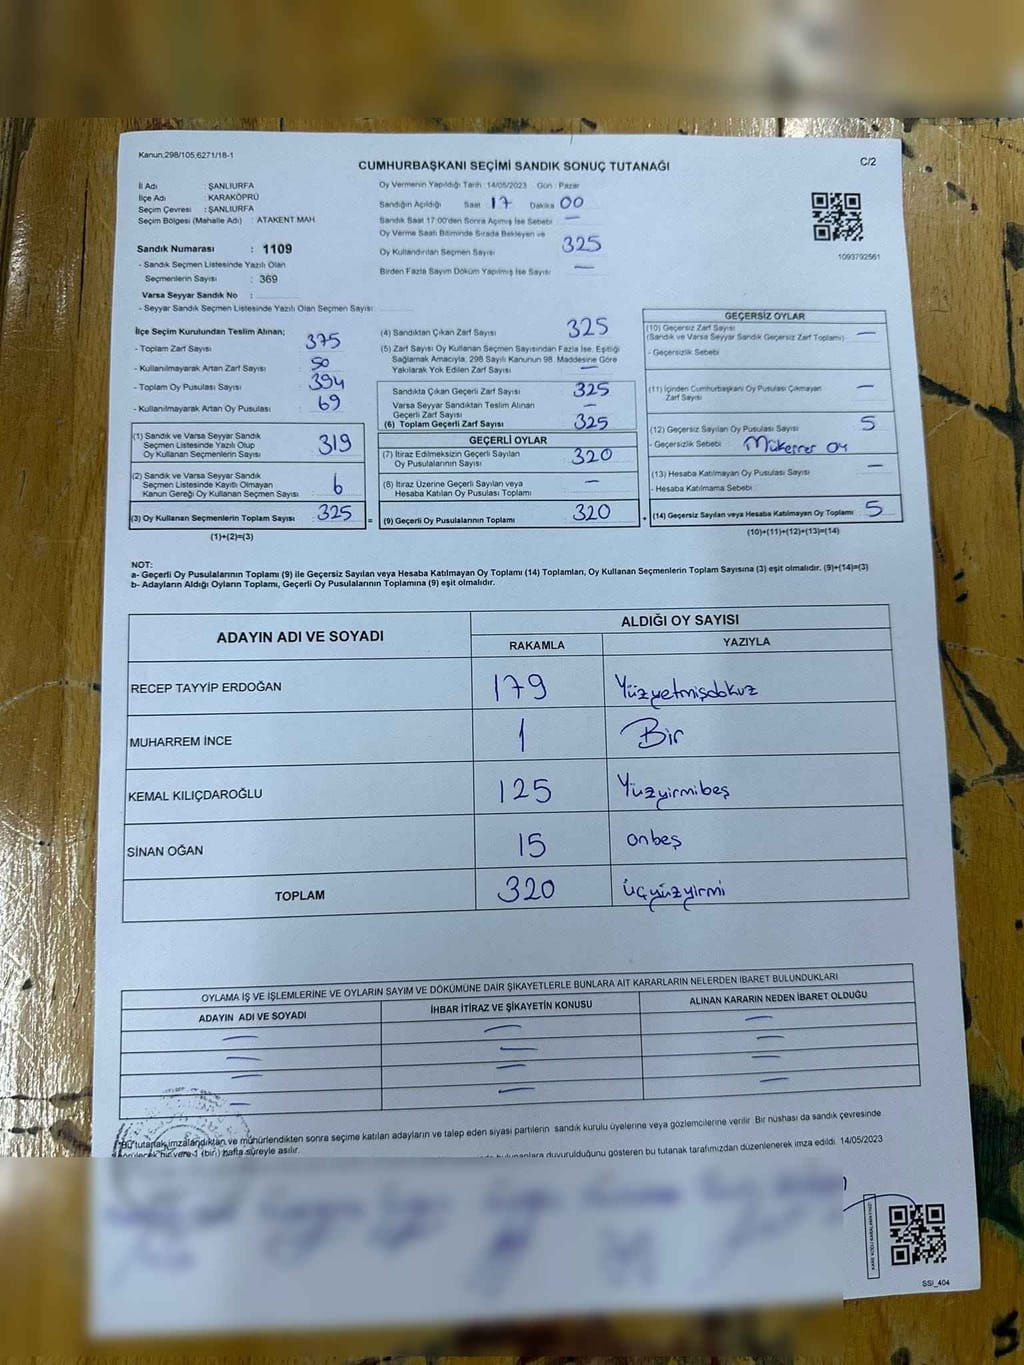 Kanun,298/105,6271/18-1
CUMHURBAŞKANI SEÇİMİ SANDIK SONUÇ TUTANAĞI
C/2
İl Adı : ŞANLIURFA
İlçe Adı : KARAKÖPRÜ
Seçim Çevresi : ŞANLIURFA
Seçim Bölgesi (Mahalle Adı) : ATAKENT MAH.
Sandık Numarası : 1109
- Sandık Seçmen Listesinde Yazılı Olan
Seçmenlerin Sayısı : 369
Varsa Seyyar Sandık No :
- Seyyar Sandık Seçmen Listesinde Yazılı Olan Seçmen Sayısı:
Oy Vermenin Yapıldığı Tarih :14/05/2023 Gün : Pazar
Sandığın Açıldığı Saat 17 Dakika 00
Sandık Saat 17:00'den Sonra Açılmış İse Sebebi: —
Oy Verme Saati Bitiminde Sırada Bekleyen ve
Oy Kullandırılan Seçmen Sayısı 325
Birden Fazla Sayım Döküm Yapılmış İse Sayısı: —
1093792561
İlçe Seçim Kurulundan Teslim Alınan;
- Toplam Zarf Sayısı 375
- Kullanılmayarak Artan Zarf Sayısı 50
- Toplam Oy Pusulası Sayısı 394
- Kullanılmayarak Artan Oy Pusulası 69
(1) Sandık ve Varsa Seyyar Sandık
Seçmen Listesinde Yazılı Olup
Oy Kullanan Seçmenlerin Sayısı 319
(2) Sandık ve Varsa Seyyar Sandık
Seçmen Listesinde Kayıtlı Olmayan
Kanun Gereği Oy Kullanan Seçmen Sayısı 6
(3) Oy Kullanan Seçmenlerin Toplam Sayısı 325
=
(1)+(2)=(3)
(4) Sandıktan Çıkan Zarf Sayısı 325
(5) Zarf Sayısı Oy Kullanan Seçmen Sayısından Fazla İse, Eşitliği
Sağlamak Amacıyla, 298 Sayılı Kanunun 98. Maddesine Göre
Yakılarak Yok Edilen Zarf Sayısı —
Sandıkta Çıkan Geçerli Zarf Sayısı 325
Varsa Seyyar Sandıktan Teslim Alınan
Geçerli Zarf Sayısı —
(6) Toplam Geçerli Zarf Sayısı 325
GEÇERLİ OYLAR
(7) İtiraz Edilmeksizin Geçerli Sayılan
Oy Pusulalarının Sayısı 320
(8) İtiraz Üzerine Geçerli Sayılan veya
Hesaba Katılan Oy Pusulası Toplamı —
(9) Geçerli Oy Pusulalarının Toplamı 320
+
GEÇERSİZ OYLAR
(10) Geçersiz Zarf Sayısı
(Sandık ve Varsa Seyyar Sandık Geçersiz Zarf Toplamı) —
- Geçersizlik Sebebi
(11) İçinden Cumhurbaşkanı Oy Pusulası Çıkmayan
Zarf Sayısı —
(12) Geçersiz Sayılan Oy Pusulası Sayısı 5
- Geçersizlik Sebebi: Mükerrer oy
(13) Hesaba Katılmayan Oy Pusulası Sayısı —
- Hesaba Katılmama Sebebi:
(14) Geçersiz Sayılan veya Hesaba Katılmayan Oy Toplamı 5
(10)+(11)+(12)+(13)=(14)
NOT:
a- Geçerli Oy Pusulalarının Toplamı (9) ile Geçersiz Sayılan veya Hesaba Katılmayan Oy Toplamı (14) Toplamları, Oy Kullanan Seçmenlerin Toplam Sayısına (3) eşit olmalıdır. (9)+(14)=(3)
b- Adayların Aldığı Oyların Toplamı, Geçerli Oy Pusulalarının Toplamına (9) eşit olmalıdır.
ADAYIN ADI VE SOYADI ALDIĞI OY SAYISI
RAKAMLA YAZIYLA
RECEP TAYYİP ERDOĞAN 179 Yüzyetmişdokuz
MUHARREM İNCE 1 Bir
KEMAL KILIÇDAROĞLU 125 Yüzyirmibeş
SİNAN OĞAN 15 onbeş
TOPLAM 320 üçyüzyirmi
OYLAMA İŞ VE İŞLEMLERİNE VE OYLARIN SAYIM VE DÖKÜMÜNE DAİR ŞİKAYETLERLE BUNLARA AİT KARARLARIN NELERDEN İBARET BULUNDUKLARI
ADAYIN ADI VE SOYADI İHBAR İTİRAZ VE ŞİKAYETİN KONUSU ALINAN KARARIN NEDEN İBARET OLDUĞU
— — —
— — —
— — —
— — —
Bu tutanak,imzalandıktan ve mühürlendikten sonra seçime katılan adayların ve talep eden siyasi partilerin sandık kurulu üyelerine veya gözlemcilerine verilir. Bir nüshası da sandık çevresinde
bir yere 1 (bir) hafta süreyle asılır.
duyurulduğunu gösteren bu tutanak tarafımızdan düzenlenerek imza edildi. 14/05/2023
SSI_404